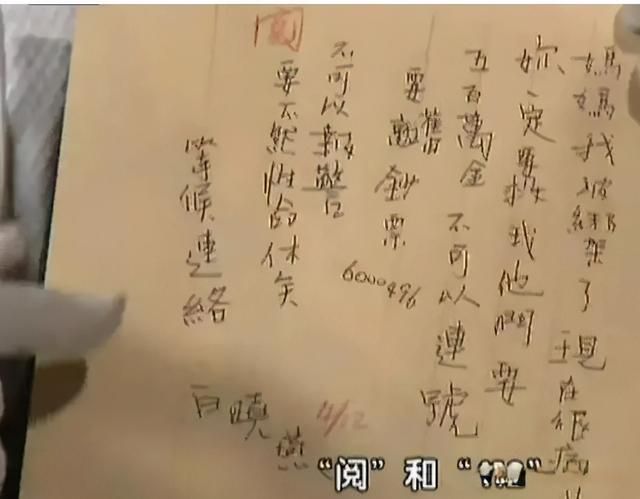 媽媽我被綁架了現在很痛
妳一定要救我他們要
五百萬金 不可以連號
要舊鈔票
6000496
不可以報警
要不然性命休矣
閱
等候連絡
白曉燕
4/12
“阅” 和 “